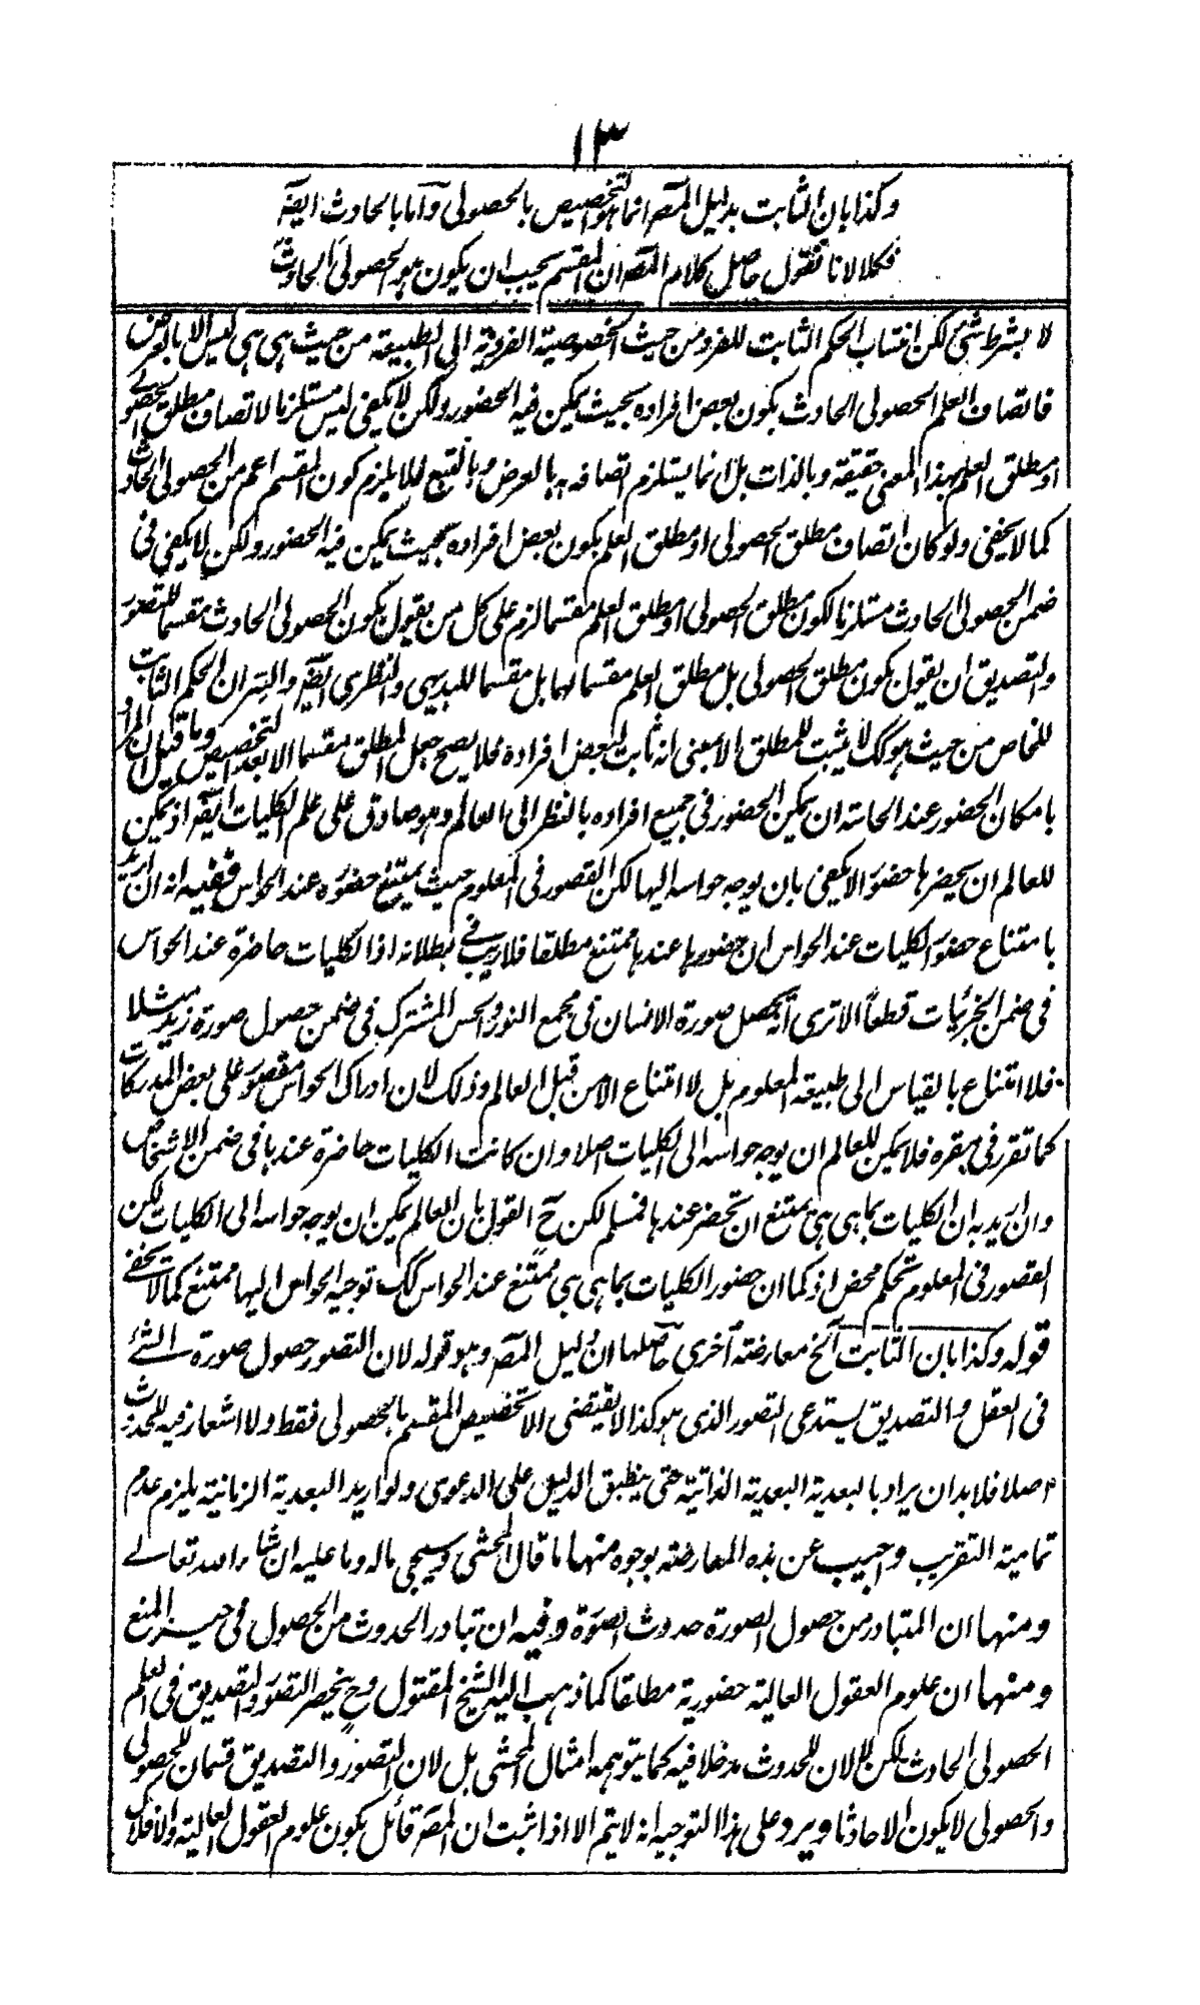 ١٣
وكذا بان الثابت بدليل المصـ انما هو التخصيص بالحصولى واما بالحادث ايضـ
فكلا لانا نقول حاصل كلام المصـ ان المقسم يجب ان يكون هو الحصولى الحادث
لا بشرط شئ لكن انتساب الحكم الثابت للفرد من حيث الخصوصية الفردية الى الطبيعة من حيث هى هى ليس الا بالعرض
فاتصاف العلم الحصولى الحادث بكون بعض افراده بحيث يمكن فيه الحضور ولكن لا يكفى ليس مستلزما لاتصاف مطلق الحصولے
او مطلق العلم بهذا المعنى حقيقة وبالذات بل انما يستلزم اتصافه به بالعرض وبالتبع لئلا يلزم كون المقسم اعم من الحصولى الحادث
كما لا يخفى ولو كان اتصاف مطلق الحصولى او مطلق العلم بكون بعض افراده بحيث يمكن فيه الحضور ولكن لا يكفى فى
ضمن الحصولى الحادث مستلزما لكون مطلق الحصولى او مطلق العلم مقسما لزم على كل من يقول بكون الحصولى الحادث مقسما للتصور
والتصديق ان يقول بكون مطلق الحصولى بل مطلق العلم مقسما لهما بل مقسما للبديهى والنظرى ايضـ والسر ان الحكم الثابت
للخاص من حيث هو كك لا يثبت للمطلق الا بمعنى انه ثابت لبعض افراده فلا يصح جعل المطلق مقسما الا بعد التخصيص وما قيل ان المراد
بامكان الحضور عند الحاسة ان يمكن الحضور فى جميع افراده بالنظر الى العالم وهو صادق على علم الكليات ايضـ اذ يمكن
للعالم ان يحضرها حضورا لا يكفى بان يوجه حواسه اليها لكن القصور فى المعلوم حيث يمتنع حضوره عند الحواس ففيه انه ان اريد
بامتناع حضور الكليات عند الحواس ان حضورها عندها ممتنع مطلقا فلا ريب فے بطلانه اذ الكليات حاضرة عند الحواس
فى ضمن الجزئيات قطعا الا ترى انه يحصل صورة الانسان فى مجمع النور والحس المشترك فى ضمن حصول صورة زيد مثلا
فلا امتناع بالقياس الى طبيعة المعلوم بل لا امتناع الا من قبل العالم وذلك لان ادراك الحواس مقصور على بعض المدركات
كما تقرر فى مقره فلا يمكن للعالم ان يوجه حواسه الى الكليات اصلا وان كانت الكليات حاضرة عندها فى ضمن الاشخاص
وان اريد به ان الكليات بما هى هى يمتنع ان تحضر عندها فمسلم لكن ح القول بان العالم يمكن ان يوجه حواسه الى الكليات لكن
القصور فى المعلوم تحكم محض اذ كما ان حضور الكليات بما هى هى ممتنع عند الحواس كك توجيه الحواس اليها ممتنع كما لا يخفے
قوله وكذا بان الثابت الخ معارضة اخرى حاصلها ان دليل المصـ وهو قوله لان التصور حصول صورة الشئے
فى العقل والتصديق يستدعى التصور الذى هو كذا لا يقتضى الا تخصيص المقسم بالحصولى فقط ولا اشعار فيه للحدوث
اصلا فلا بد ان يراد بالبعدية البعدية الذاتية حتى ينطبق الدليل على الدعوى ولو اريد البعدية الزمانية يلزم عدم
تمامية التقريب واجيب عن هذه المعارضة بوجوه منها ما قال المحشى وسيجى ماله وما عليه ان شاء الله تعالے
ومنها ان المتبادر من حصول الصورة حدوث الصورة وفيه ان تبادر الحدوث من الحصول فى حيز المنع
ومنها ان علوم العقول العالية حضورية مطلقا كما ذهب اليه الشيخ المقتول وح ينحصر التصور والتصديق فى العلم
الحصولى الحادث لكن لا لان للحدوث مدخلا فيه كما يتوهمه امثال المحشى بل لان التصور والتصديق قسمان للحصولى
والحصولى لا يكون الا حادثا ويرد على هذا التوجيه انه لا يتم الا اذا ثبت ان المصـ قائل بكون علوم العقول العالية والافلاك